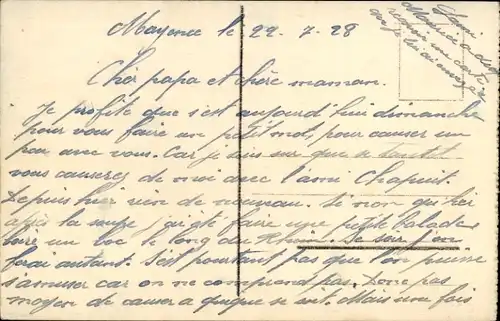 Mayence le 22-7-28
Cher papa et chère maman.
Je profite que s'est aujourd'hui dimanche
pour vous faire un petit mot, pour causer un
peu avec vous. Car je suis sur que
vous causerez de moi avec l'ami Chapuit.
Depuis hier rien de nouveau. Si non qu'hier
après la soupe j'ai été faire une petite balade
boire un boc le long du Rhin. Ce soir j'en
ferai autant. S'est pourtant pas que l'on puisse
s'amuser car on ne comprend pas. Donc pas
moyen de causer a quique se soit. Mais une fois
L'ami
Maurice a dû
recevoir une carte
que je lui ai envoyer